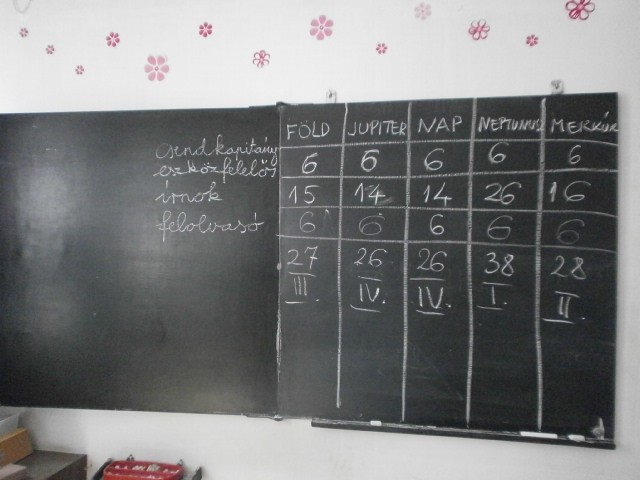 FÖLD JUPITER NAP NEPTUNUSZ MERKÚR
csendkapitány
eszközfelelős 6 6 6 6 6
írnok 15 14 14 26 16
felolvasó 6 6 6 6 6
27 26 26 38 28
III. IV. IV. I. II.